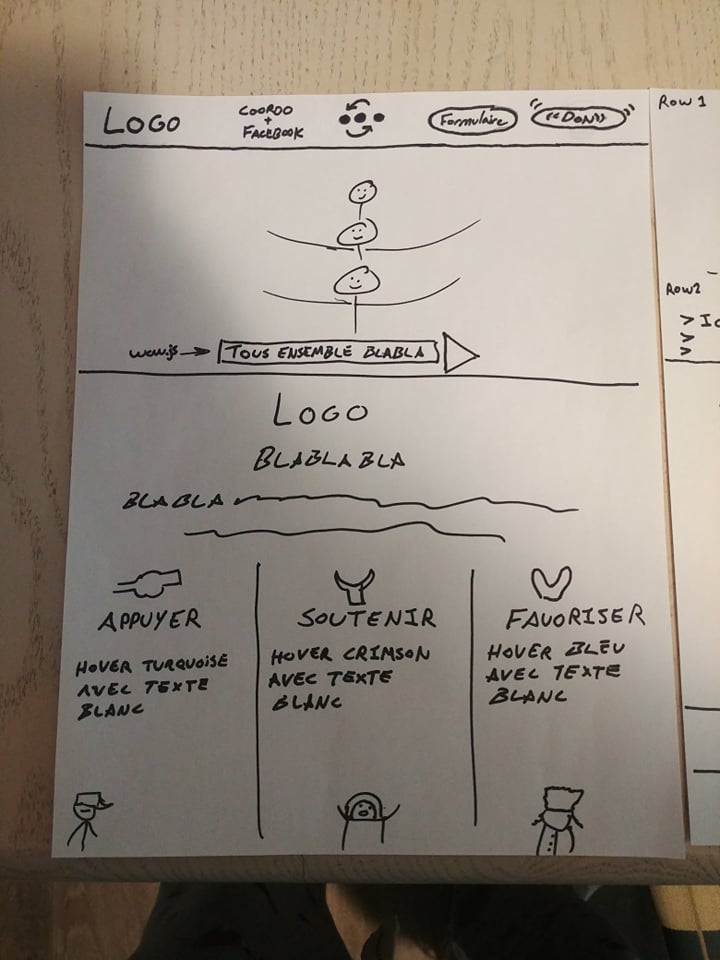 LOGO
COORDO
+
FACEBOOK
Formulaire
"DON"
wow.js
TOUS ENSEMBLE BLABLA
LOGO
BLABLABLA
BLABLA
APPUYER
HOVER TURQUOISE
AVEC TEXTE
BLANC
SOUTENIR
HOVER CRIMSON
AVEC TEXTE
BLANC
FAVORISER
HOVER BLEU
AVEC TEXTE
BLANC
Row 1
Row2
>
>
>